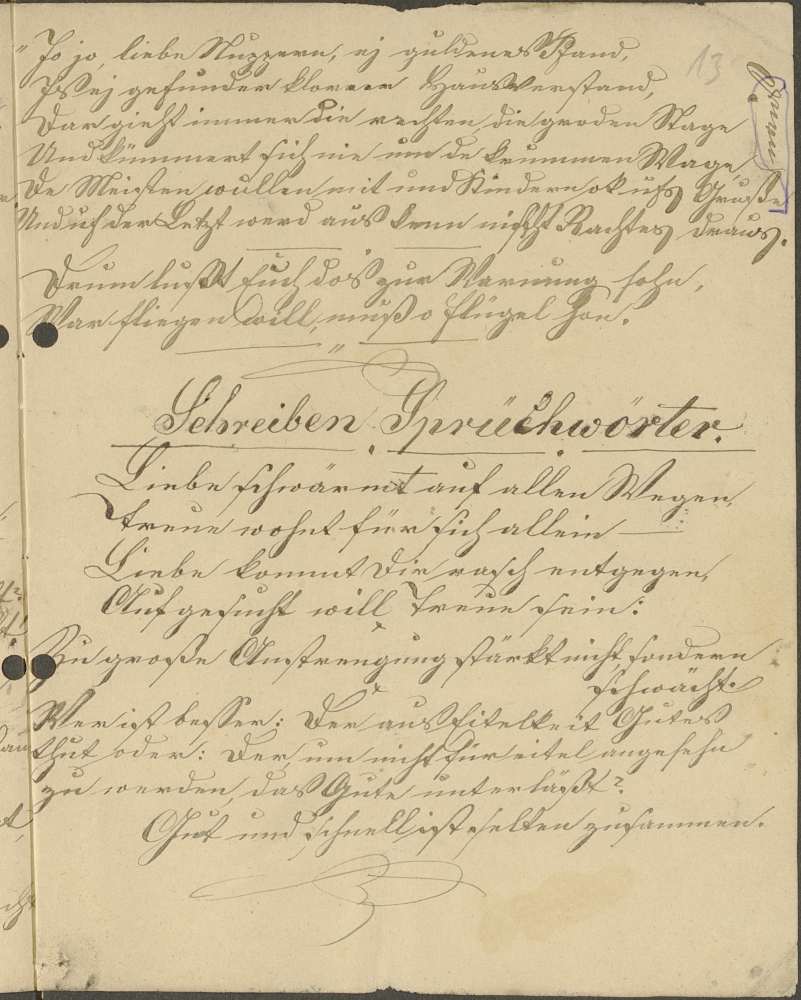 13
"Jo jo, liebe Nuppern, ej guldenes Pfand,
Js ej gesunder klorer Hausverstand,
Dar gieht immer die rechten, die groden Stage
Und kümmert sich nie um de krummen Wage,
De Meisten wullen mit und Kindern ok ufs Gruße
Und uf der Letzt werd aus denn nischt Rachtes draus.
Drum lußt Euch dos zur Warnung sohn,
War fliegen will, muß o Flügel hon."
Schreiben Sprüchwörter.
Liebe schwärmt auf allen Wegen,
Treue wohnt für sich allein —
Liebe kommt Dir rasch entgegen,
Aufgesucht will Treue sein:
Zu große Anstrengung stärkt nicht, sondern
schwächt.
Wer ist besser: Der aus Eitelkeit Gutes
thut oder: Der, um nicht für eitel angesehn
zu werden, das Gute unterläßt?
Gut und schnell ist selten zusammen.